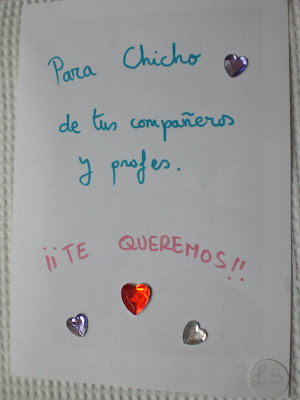 Para Chicho
de tus compañeros
y profes.
¡¡TE QUEREMOS!!
LS